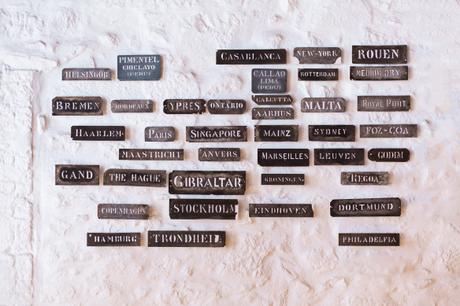 CASABLANCA
NEW-YORK
ROUEN
PIMENTEL
CHICLAYO
(PEROU)
HELSINGOR
CALLAO
LIMA
(PEROU)
ROTTERDAM
BREMEN
BORDEAUX
YPRES
ONTARIO
CALCUTTA
MALTA
AARHUS
HAARLEM
PARIS
SINGAPORE
MAINZ
SYDNEY
FOZ-COA
MAASTRICHT
ANVERS
MARSEILLES
LEUVEN
GODIM
GAND
THE HAGUE
GIBRALTAR
GRONINGEN
REGOA
COPENHAGEN
STOCKHOLM
EINDHOVEN
DORTMUND
HAMBURG
TRONDHEIL
PHILADELFIA